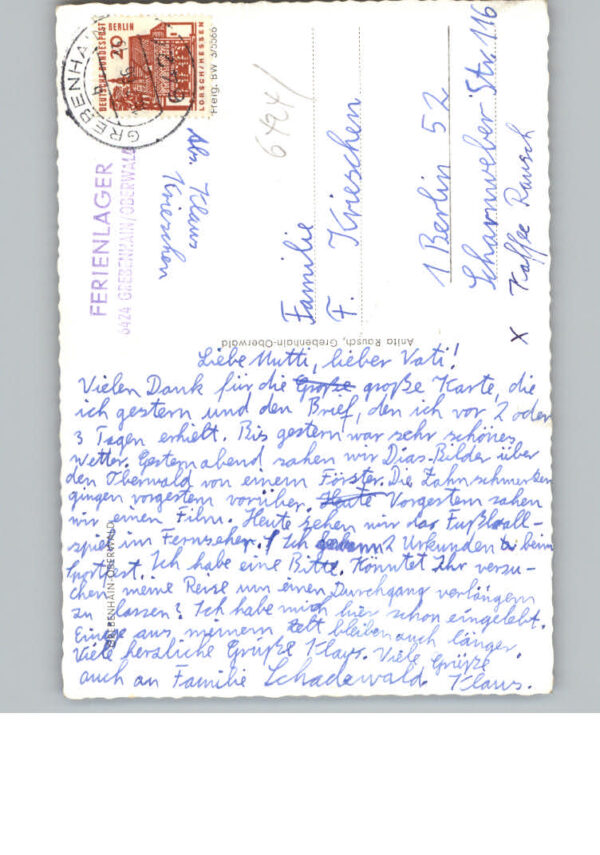 Liebe Mutti, lieber Vati!
Vielen Dank für die Große große Karte, die
ich gestern und den Brief, den ich vor 2 oder
3 Tagen erhielt. Bis gestern war sehr schönes
Wetter. Gestern abend sahen wir Dias-Bilder über
den Oberwald von einem Förster. Die Zahnschmerzen
gingen vorgestern vorüber. Heute Vorgestern sahen
wir einen Film. Heute sehen wir das Fußball-
spiel im Fernseher. Ich 2 Urkunden beim
Sportfest. Ich habe eine Bitte. Könntet Ihr versu-
chen meine Reise um einen Durchgang verlängern
zu lassen? Ich habe mich hier schon eingelebt.
Einige aus meinem Zelt bleiben auch länger.
Viele herzliche Grüße Klaus. Viele Grüße
auch an Familie Schadewald Klaus.
GREBENHAIN-OBERWALD
Anita Rausch, Grebenhain-Oberwald
FERIENLAGER
6424 GREBENHAIN/OBERWALD
Abs. Klaus
Krieschen
6424/
Familie
F. Krieschen
1 Berlin 52
Scharnweber Str. 116
x Kaffee Rausch
GREBENHAIN
DEUTSCHE BUNDESPOST BERLIN
20
LORSCH/HESSEN
Freig. BW 3/5566